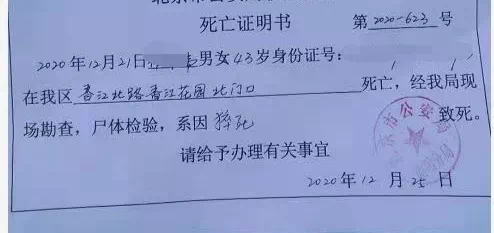 死亡证明书 第2020-623号
2020年12月21日 男女43岁身份证号:
在我区香江北路香江花园北门口死亡，经我局现
场勘查，尸体检验，系因猝死致死。
请给予办理有关事宜
2020年12月25日